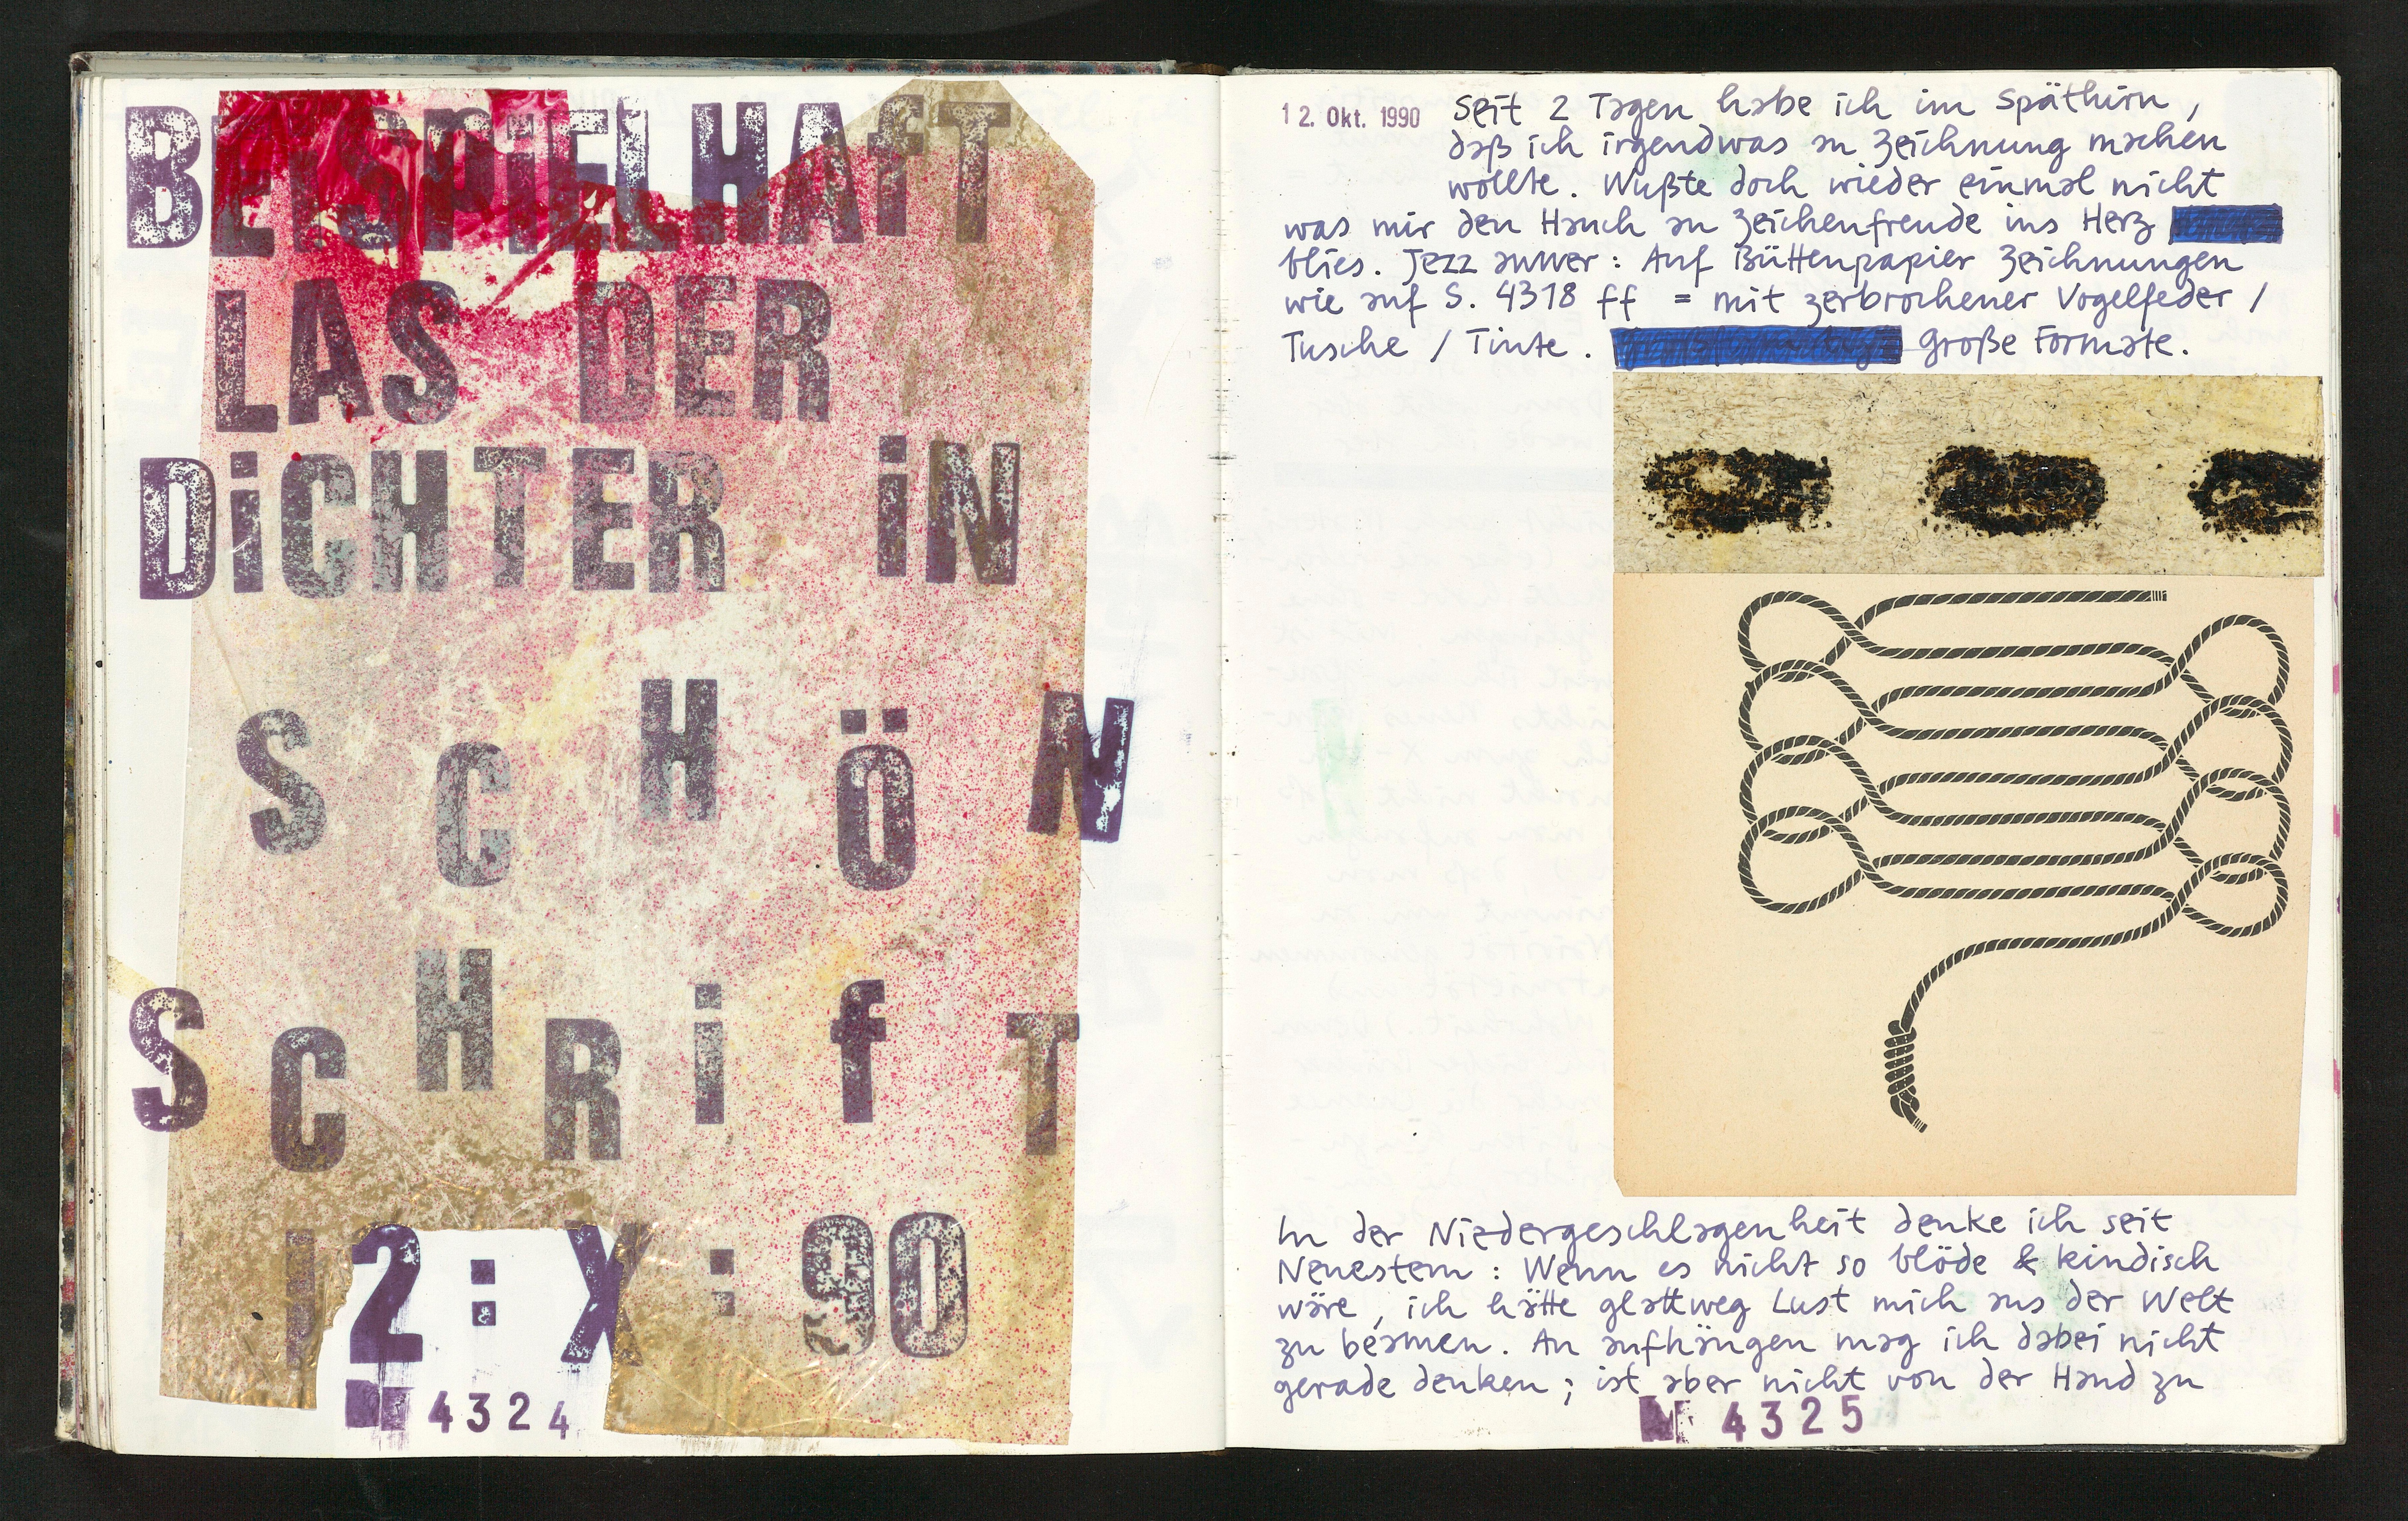 BEiSPiELHAfT
LAS DER
DiCHTER iN
SCHÖN
SCHRifT
12:X:90
№ 4324
12. Okt. 1990 Seit 2 Tagen habe ich im Späthirn,
daß ich irgendwas an Zeichnung machen
wollte. Wußte doch wieder einmal nicht
was mir den Hauch an Zeichenfreude ins Herz
blies. Jezz auwer: Auf Büttenpapier Zeichnungen
wie auf S. 4318 ff = mit zerbrochener Vogelfeder /
Tusche / Tinte. Große Formate.
In der Niedergeschlagenheit denke ich seit
Neuestem: Wenn es nicht so blöde & kindisch
wäre, ich hätte glattweg Lust mich aus der Welt
zu beamen. An aufhängen mag ich dabei nicht
gerade denken; ist aber nicht von der Hand zu
№ 4325